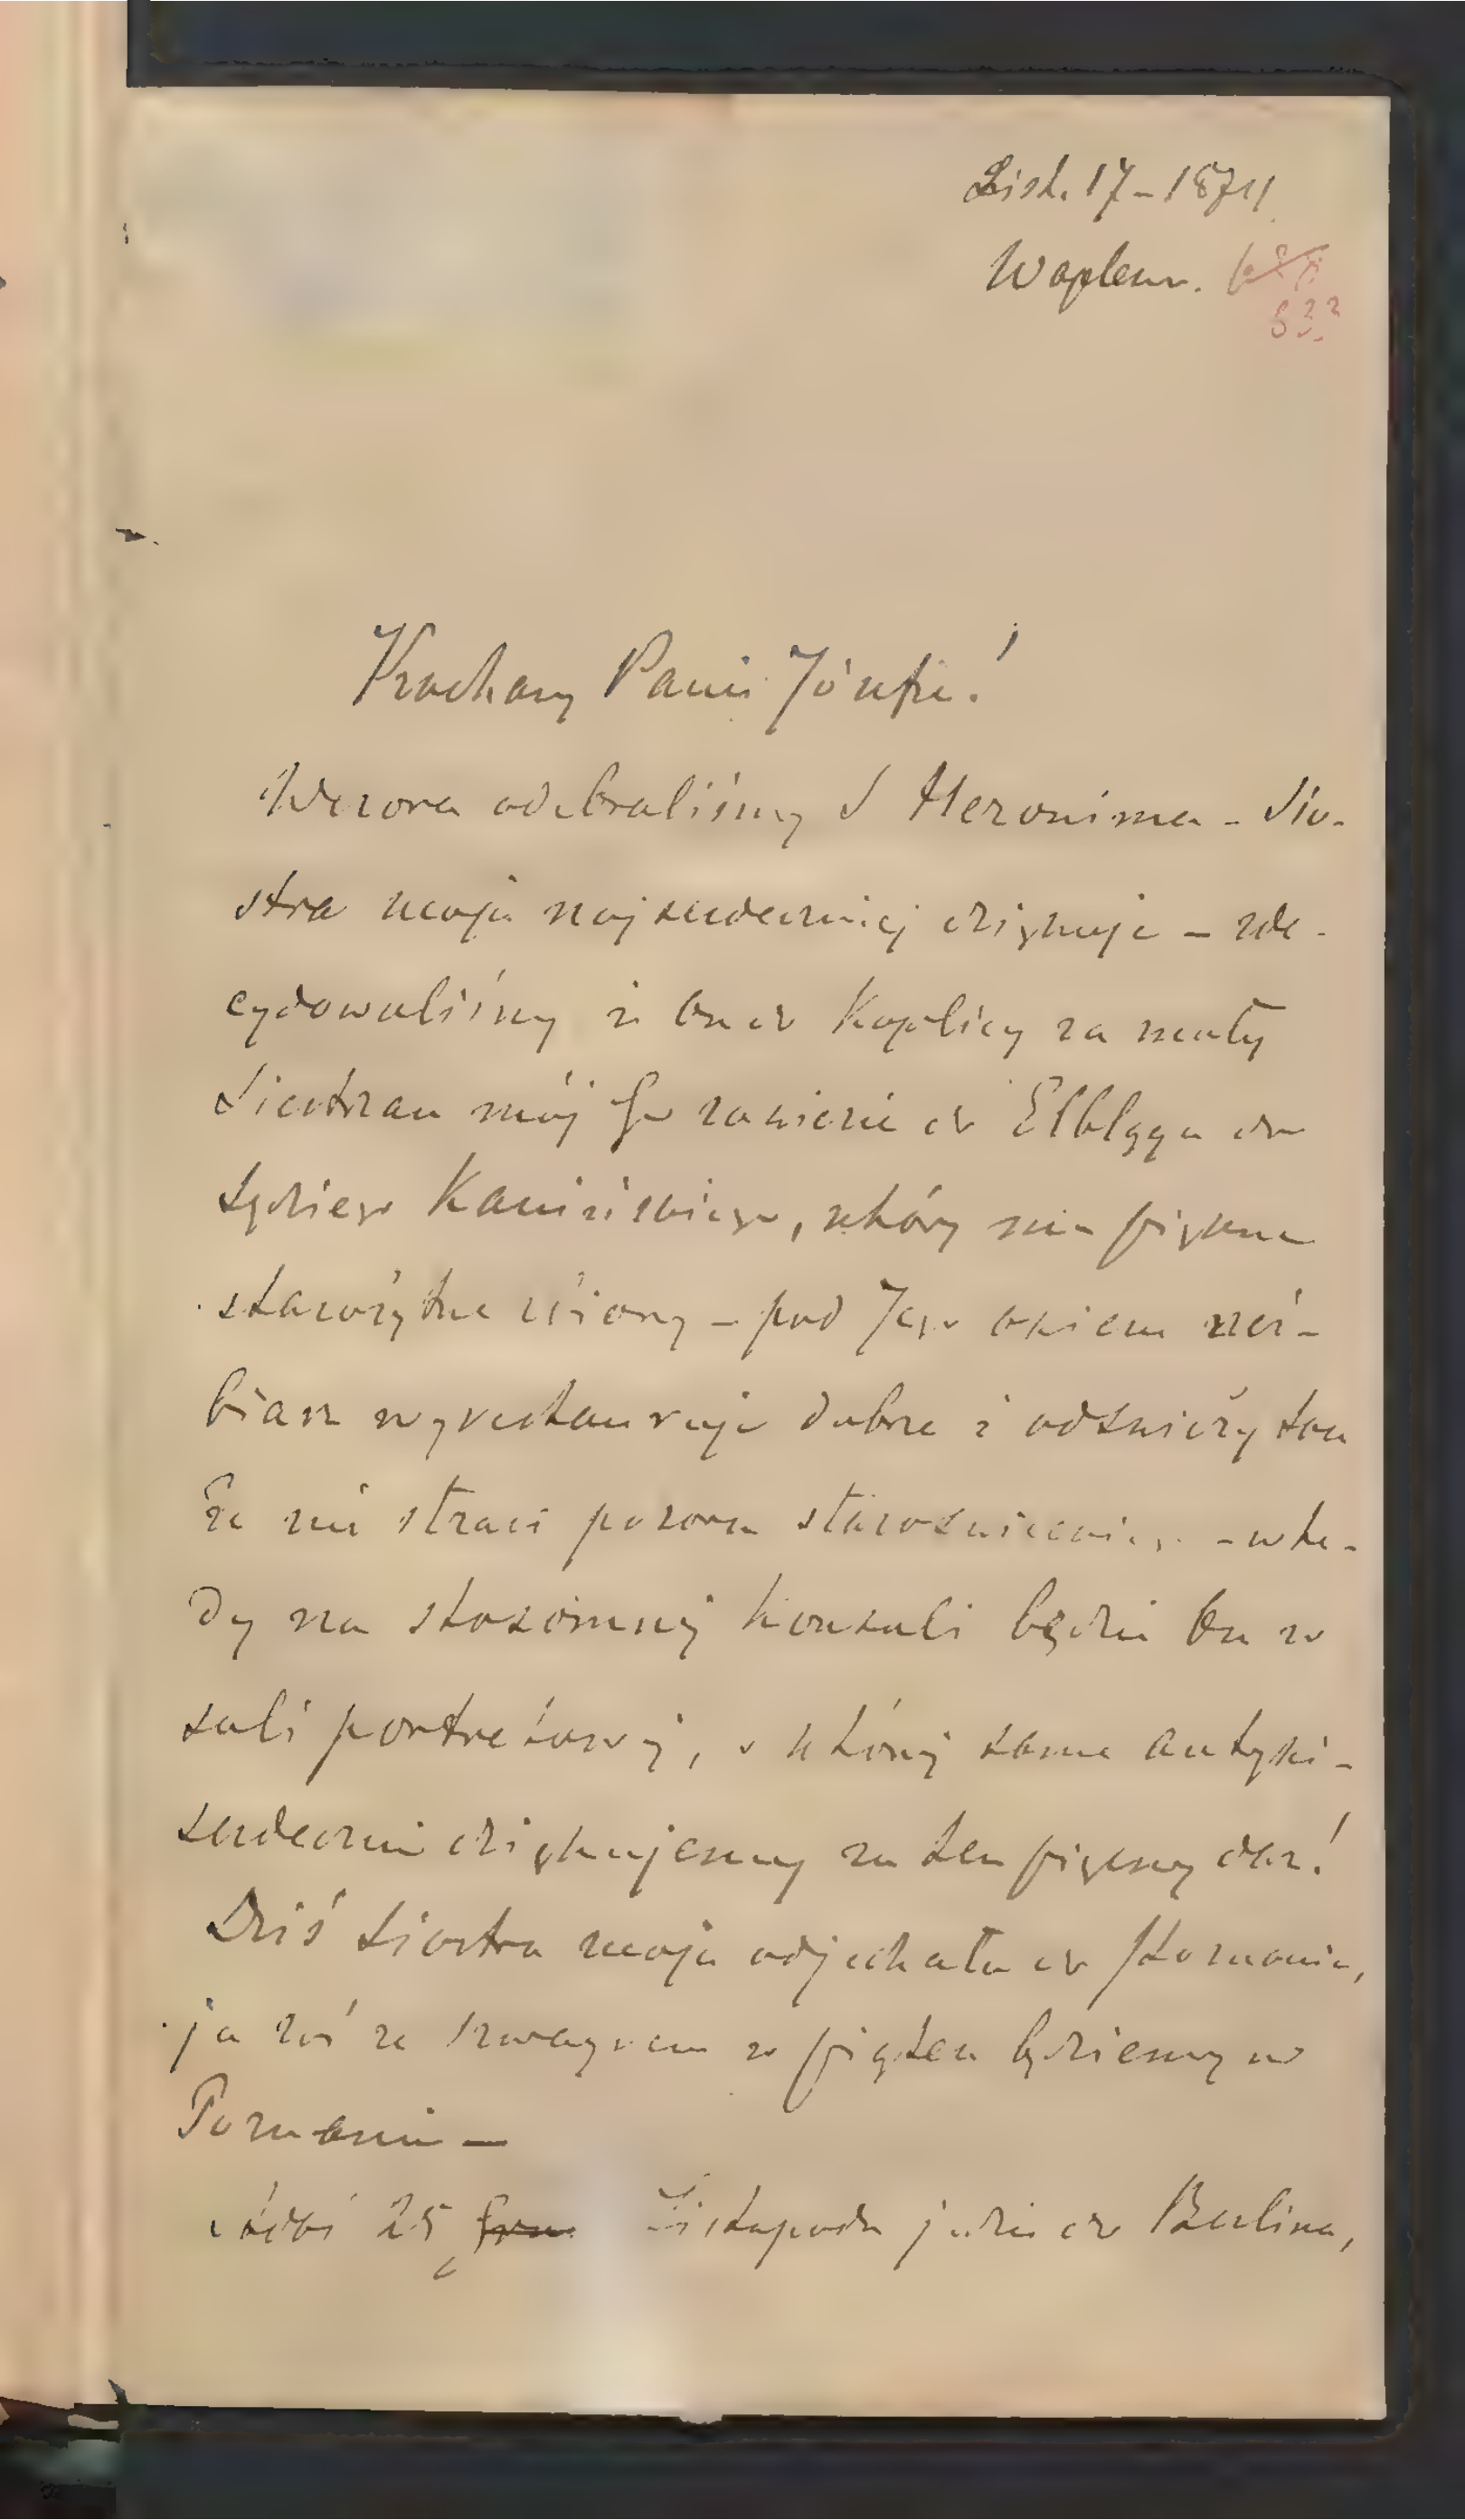 List. 17 - 1874
Waplewo.
532
Kochany Panie Józefie!
Wczora odebraliśmy S Heronima - Sio-
stra moja najserdeczniej dziękuje - zde-
cydowaliśmy że On do Kaplicy za mały
Siostrzan mój Go zawiezie do Elbląga do
Sędziego Kamińskiego, który ma piękne
starożytne zbiory - pod Jego okiem
wyrestauruje dobrze i odświeży tam
że nie straci pozoru starożytności - wte-
dy na stosownej konsoli będzie On w
sali portretowej, w której same antyki -
serdecznie dziękujemy za ten piękny dar!
Dziś Siostra moja odjechała do Poznania,
ja zaś ze szwagrem w piątek będziemy w
Poznaniu -
25 Listopada jedzie do Berlina,